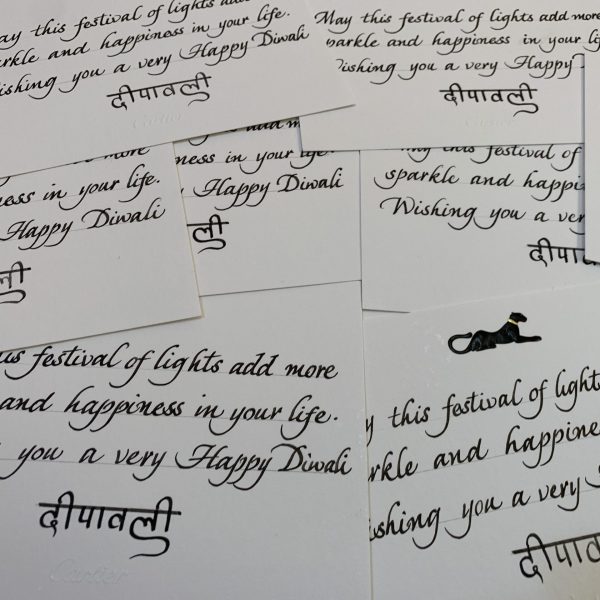 ay this festival of lights add
rkle and happiness in your life.
ishing you a very Happy Diwali
दीपावली
Cartier
May this festival of lights add more
parkle and happiness in your li
Wishing you a very Happy
दीपावली
Cartier
more
ness in your life.
Happy Diwali
ली
add m
ness in your life.
Happy Diwali
ली
May this festival of
sparkle and happi
Wishing you a ver
दीपा
us festival of lights add more
and happiness in your life.
you a very Happy Diwali
दीपावली
Cartier
y this festival of lights
rkle and happine
ishing you a very
दीपाव